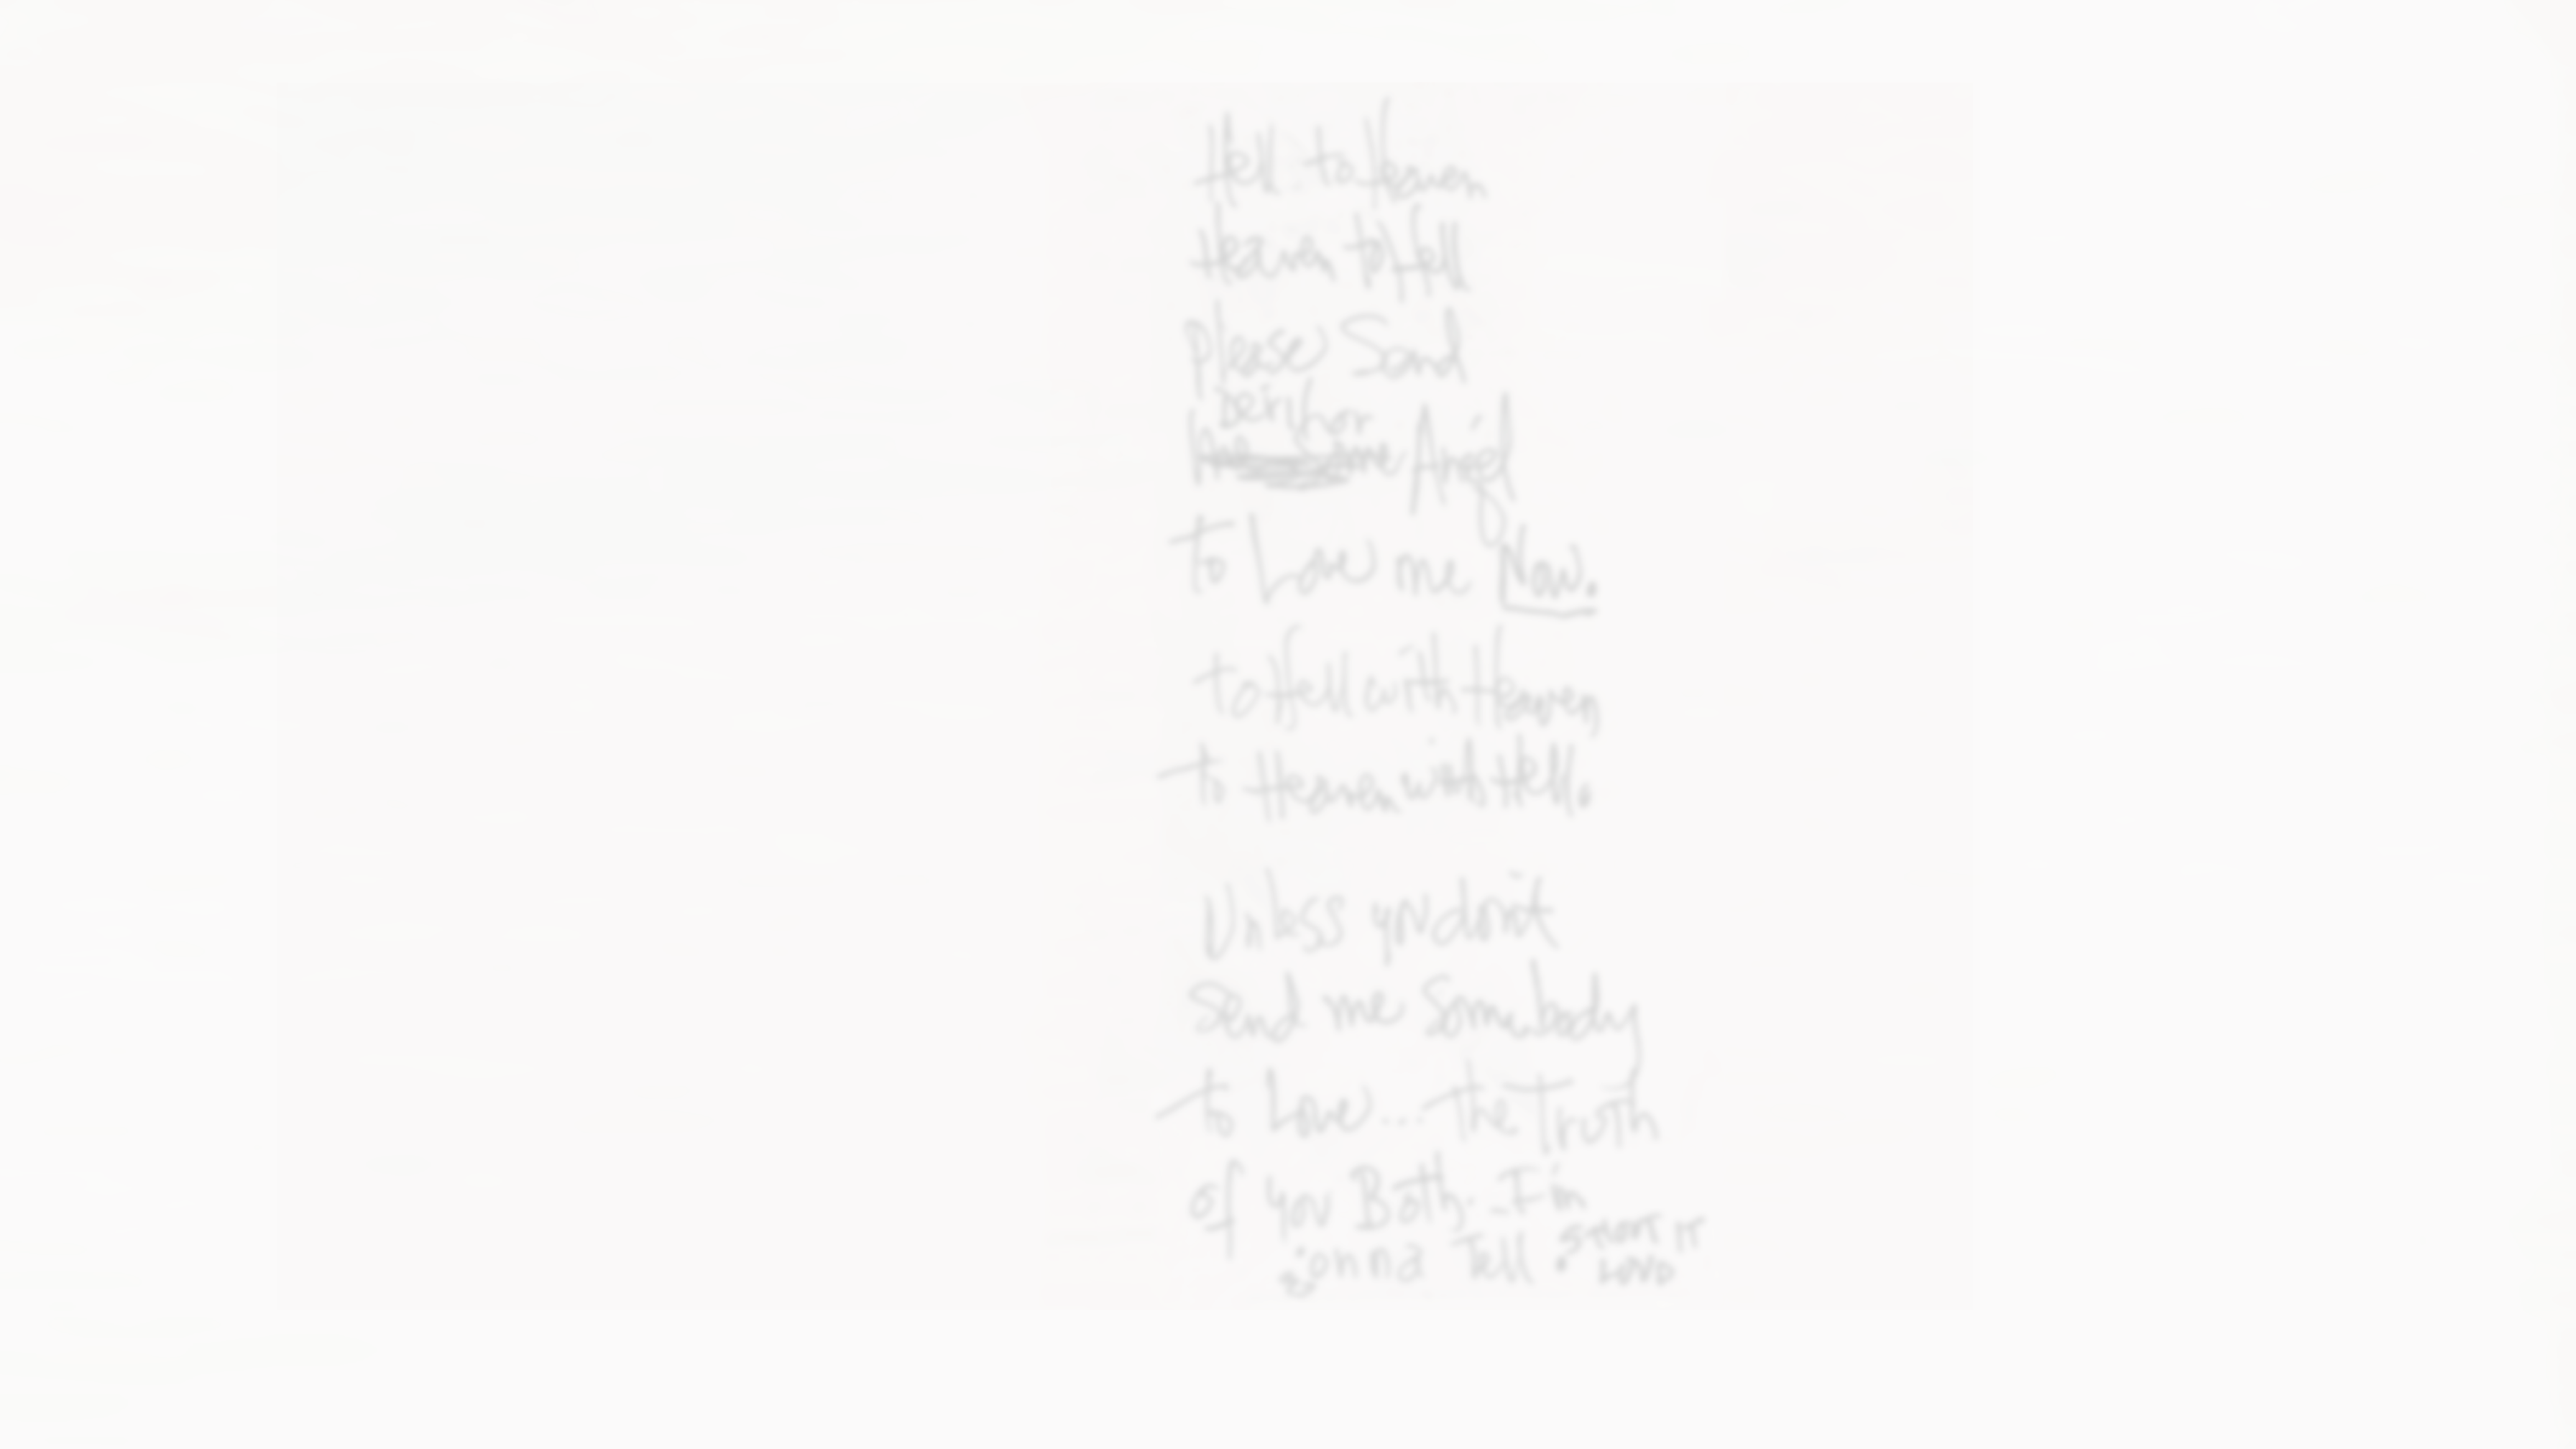 Hell to Heaven
Heaven to Hell
Please Send
Angel
to Love me Now.
to Hell with Heaven
to Heaven with Hell.
Unless you don't
Send me Somebody
to Love... the Truth
of you Both. I'm
gonna Tell.
SHOUT IT
LOUD